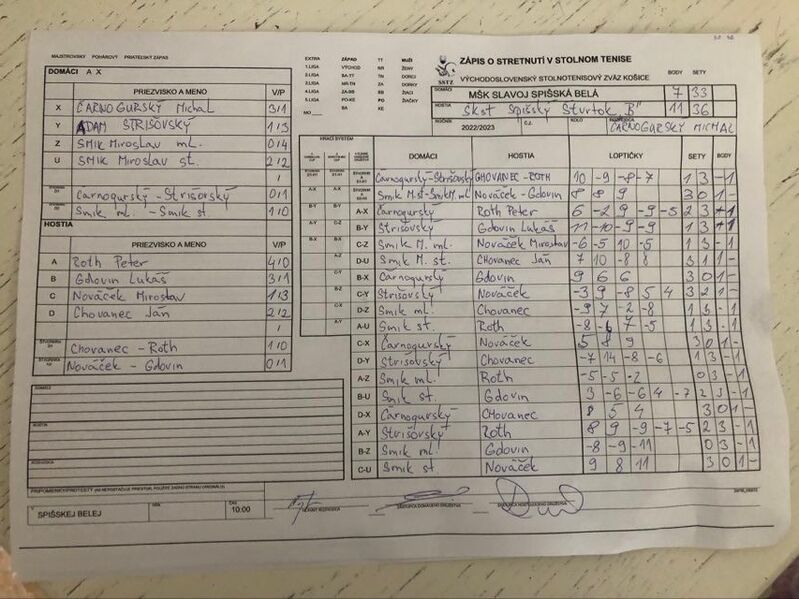 MAJSTROVSKÝ POHÁROVÝ PRIATEĽSKÝ ZÁPAS
DOMÁCI A X
PRIEZVISKO A MENO V/P
X ČARNOGURSKÝ Michal 3/1
Y ADAM STRIŠOVSKÝ 1/3
Z SMIK Miroslav ml. 0/4
U SMIK Miroslav st. 2/2
/
Čarnogurský - Strišovský 0/1
Smik ml. - Smik st 1/0
HOSTIA
PRIEZVISKO A MENO V/P
A Roth Peter 4/0
B Gdovin Lukáš 3/1
C Nováček Miroslav 1/3
D Chovanec Ján 2/2
/
Chovanec - Roth 1/0
Nováček - Gdovin 0/1
DOMÁCI
HOSTIA
ROZHODCA
SPIŠSKEJ BELEJ
ČAS
10:00
EXTRA ZÁPAD TT MUŽI
1.LIGA VÝCHOD NR ŽENY
2.LIGA BA-TT TN DORCI
3.LIGA NR-TN ZA DORKY
4.LIGA ZA-BB BB ŽIACI
5.LIGA PO-KE PO ŽIAČKY
BA KE
MO
SSTZ
ZÁPIS O STRETNUTÍ V STOLNOM TENISE
VÝCHODOSLOVENSKÝ STOLNOTENISOVÝ ZVÄZ KOŠICE
BODY SETY
DOMÁCI
MŠK SLAVOJ SPIŠSKÁ BELÁ 7 33
HOSTIA
SKST Spišský Štvrtok "B" 11 36
ROČNÍK Č.Z. KOLO
2022/2023 ČARNOGURSKÝ MICHAL
HRACÍ SYSTÉM
DOMÁCI HOSTIA LOPTIČKY SETY BODY
Čarnogurský-Strišovský CHOVANEC - ROTH 10 -9 -8 -7 1 3 - 1
Smik M.st-Smik M. ml Nováček - Gdovin 8 8 9 3 0 1 -
A-X Čarnogurský Roth Peter 6 -2 9 -9 -5 2 3 - 1
B-Y Strišovský Gdovin Lukáš 11 -10 -9 -9 1 3 - 1
C-Z Smik M. ml. Nováček Miroslav -6 -5 10 -5 1 3 - 1
D-U Smik M. st. Chovanec Ján 7 10 -8 8 3 1 1 -
B-X Čarnogurský Gdovin 9 6 6 3 0 1 -
C-Y Strišovský Nováček -3 9 -8 5 4 3 2 1 -
D-Z Smik ml. Chovanec -9 7 -2 -8 1 3 - 1
A-U Smik st. Roth -8 -6 7 -5 1 3 - 1
C-X Čarnogurský Nováček 5 8 9 3 0 1 -
D-Y Strišovský Chovanec -7 14 -8 -6 1 3 - 1
A-Z Smik ml. Roth -5 -5 -2 0 3 - 1
B-U Smik st. Gdovin 3 -6 -6 4 -7 2 3 - 1
D-X Čarnogurský Chovanec 8 5 4 3 0 1 -
A-Y Strišovský Roth 8 9 -9 -7 -5 2 3 - 1
B-Z Smik ml. Gdovin -8 -9 -11 0 3 - 1
C-U Smik st. Nováček 9 8 11 3 0 1 -